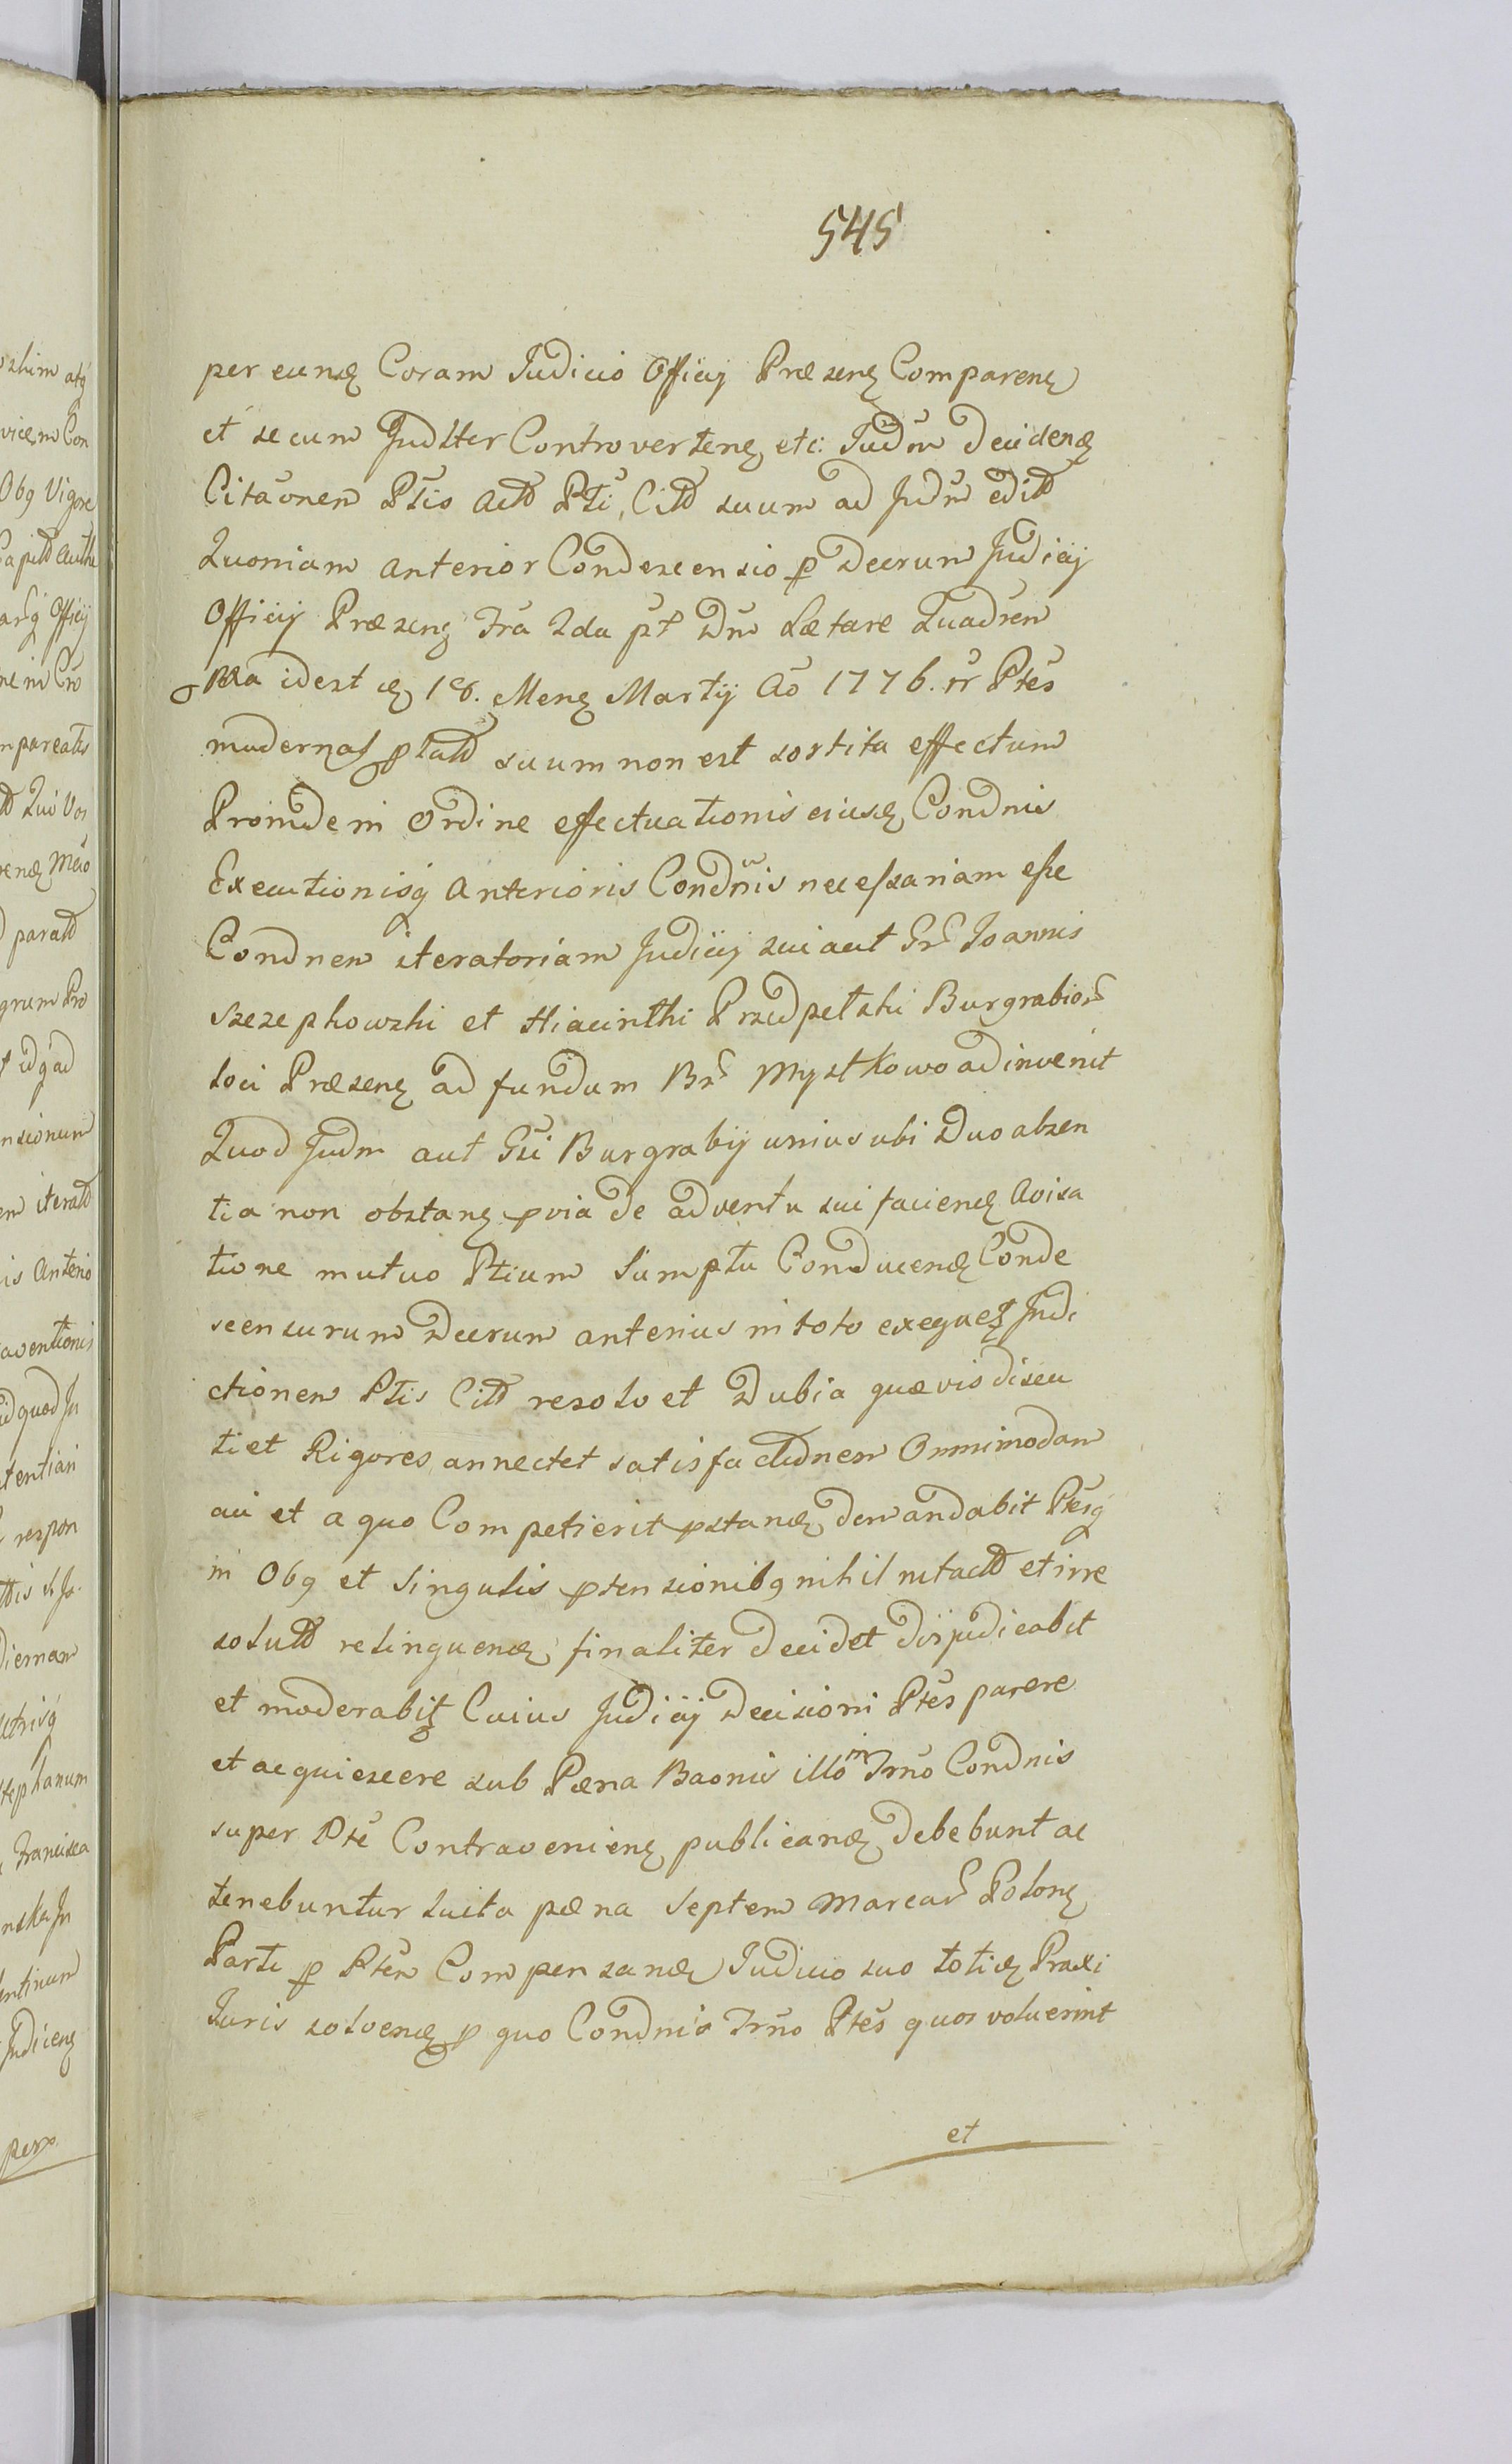 545
per eund Coram Judicio Officij Præsen Comparen
et secum Judlter Controverten etc: Judm deciden
Citãonem Ptis Actt Pti, Citt suum ad Judm editt
Quoniam anterior Condescensio p Decrum Judicij
Officij Præsen Fra 2da pt Dm Lætare Quadren
prã idest d 18. Men Martij Aõ 1776. rr Ptes
modernas platt suum non est sortita effectum
Proinde in Ordine effectuationis eiusd Condnis
Executionisq Anterioris Condnis necessariam esse
Condnem iteratoriam Judicij sui aut Gr Joannis
Szczepkowski et Hiacinthi Przedpełski Burgrabior
loci Præsen ad fundum Br Mystkowo adinvenit
Quod Judm aut Gsi Burgrabij unius ubi Duo absen
tia non obstan pvia de adventu sui facien Avisa
tione mutuo Ptium Sumptu Conducend Conde
scensurum Decrum anterius in toto exequet Judi
ctionem Ptis Citt resolvet Dubia quævis discu
tiet Rigores annectet satisfactionem Omnimodam
cui et a quo Competierit pstand demandabit Ptesq
in Obq et Singulis ptensionibq nihil intactt et irre
solutt relinquend finaliter decidet dijudicabit
et moderabit Cuius Judicij Decisioni Ptes parere
et acquiescere sub Pæna Baonis illõ in Trno Condnis
super Pte Contravenien publicand debebunt ac
tenebuntur lucta pæna Septem Marcar Polon
Parti p Ptem Compensand Judicio suo totid Praxi
Juris solvend p quo Condnis Trno Ptes quos voluerint
et